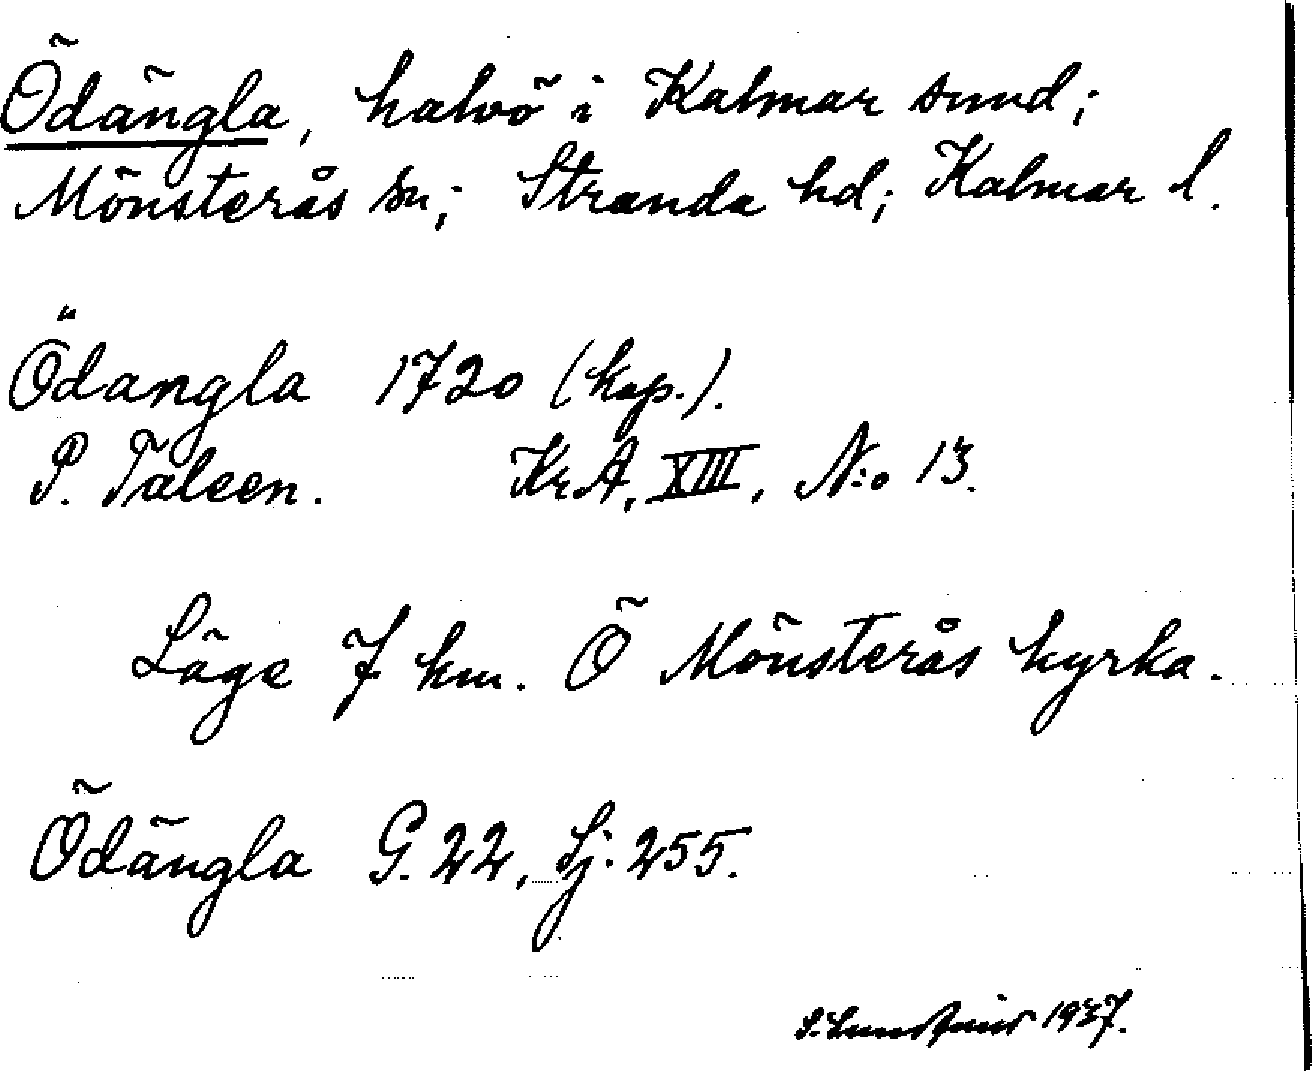 Ödängla, halvö i Kalmar sund;
Mönsterås sn; Stranda hd; Kalmar l.
Ödangla 1720 (kop.).
P. Täleen. KrA, XIII, N:o 13.
Läge 7 km. Ö Mönsterås kyrka.
Ödängla G. 22, Sj. 255.
1937.